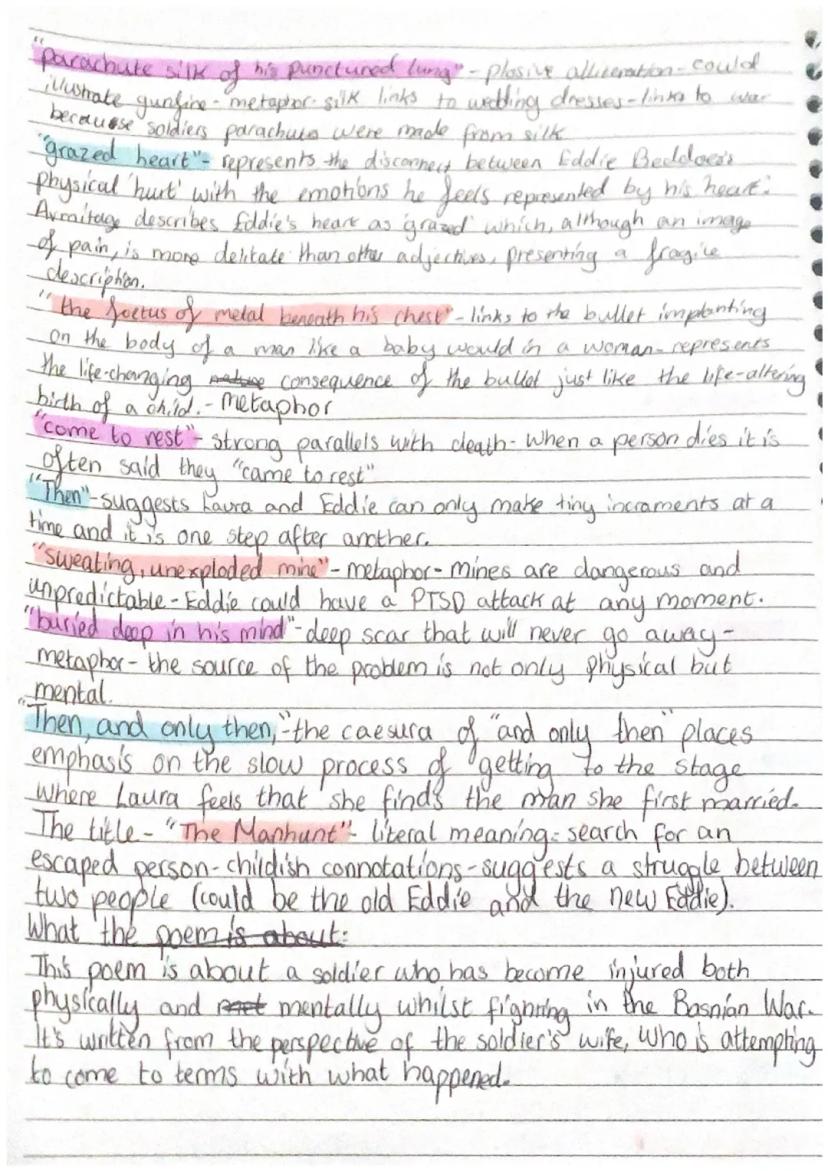 "parachute silk of his punctured lung" - plosive alliteration - could
illustrate gunfire - metaphor - silk links to wedding dresses - links to war
because soldiers parachutes were made from silk
"grazed heart" - represents the disconnect between Eddie Beddoes's
physical 'hurt' with the emotions he feels represented by his 'heart'.
Armitage describes Eddie's heart as 'grazed' which, although an image
of pain, is more delitate than other adjectives, presenting a fragile
description.
"the foetus of metal beneath his chest" - links to the bullet implanting
on the body of a man like a baby would in a woman - represents
the life-changing nature consequence of the bullet just like the life-altering
birth of a child. - metaphor
"come to rest" - strong parallels with death - when a person dies it is
often said they "came to rest"
"Then" - suggests Laura and Eddie can only make tiny incraments at a
time and it is one step after another.
"sweating, unexploded mine" - metaphor - mines are dangerous and
unpredictable - Eddie could have a PTSD attack at any moment.
"buried deep in his mind" - deep scar that will never go away -
metaphor - the source of the problem is not only physical but
mental.
"Then, and only then," - the caesura of "and only then" places
emphasis on the slow process of getting to the stage
where Laura feels that she finds the man she first married.
The title - "The Manhunt" - literal meaning = search for an
escaped person - childish connotations - suggests a struggle between
two people (could be the old Eddie and the new Eddie).
What the poem is about:
This poem is about a soldier who has become injured both
physically and mentally whilst fighting in the Bosnian War.
It's written from the perspective of the soldier's wife, who is attempting
to come to terms with what happened.